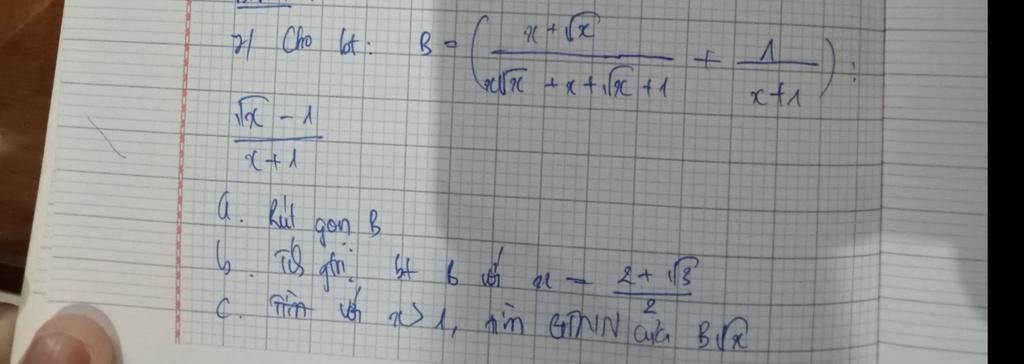 2) Cho bt: B = ( (x + √x) / (x√x + x + √x + 1) + 1 / (x + 1) ) :
(√x - 1) / (x + 1)
a. Rút gọn B
b. Tính gtrị bt B với x = (2 + √3) / 2
c. với x > 1, tìm GTNN của B√x